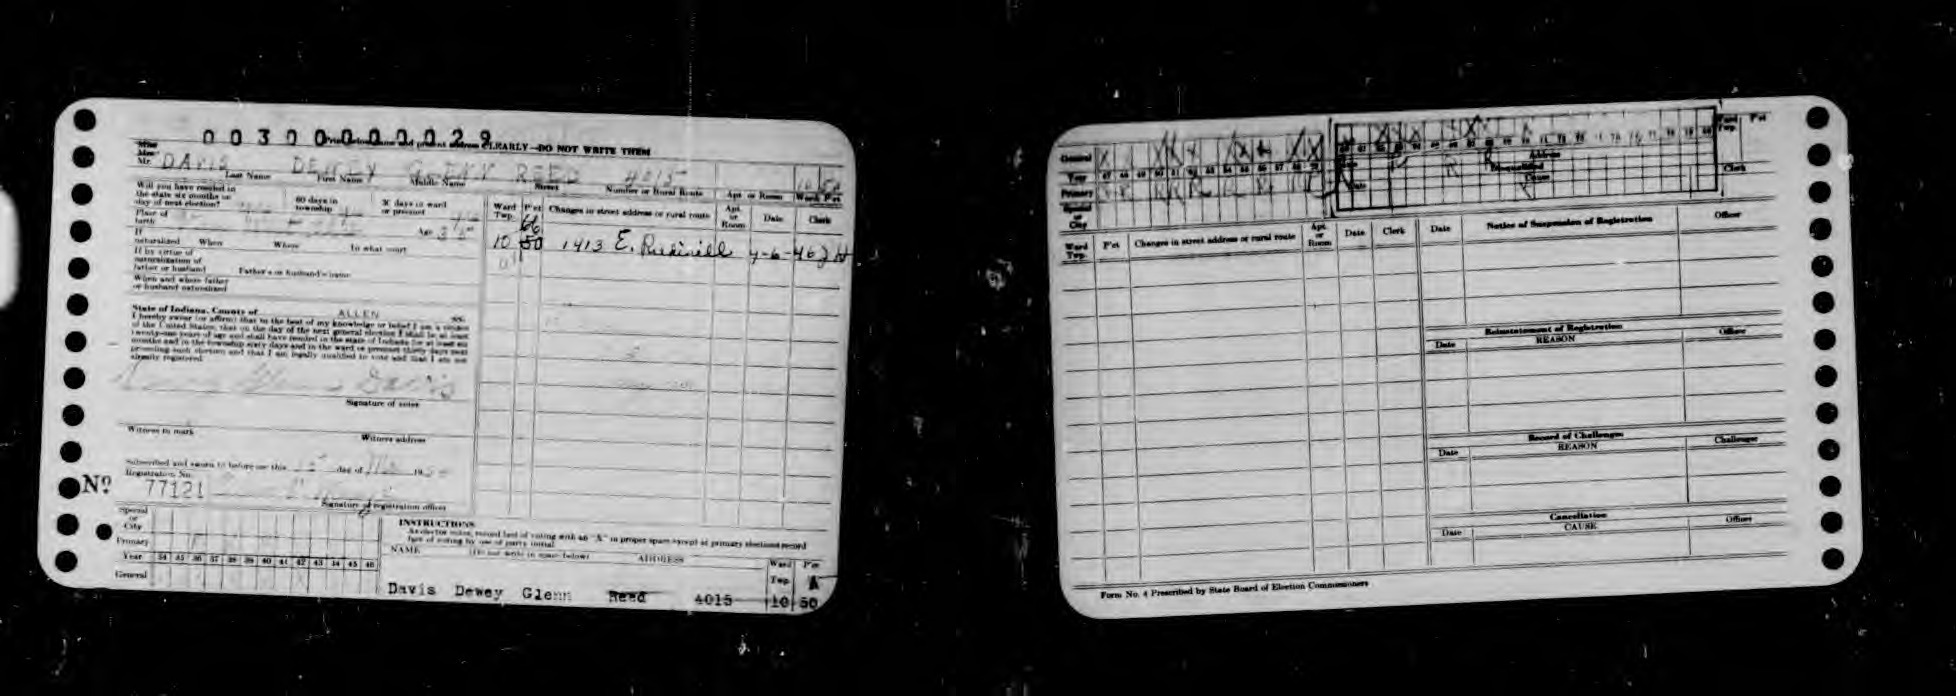 00300000029
Print your name and present address CLEARLY—DO NOT WRITE THEM
Miss
Mrs.
Mr. DAVIS DEWEY GLENN REED 4015 10 50
Last Name First Name Middle Name Street Number or Rural Route Apt. or Room Ward P'ct
Will you have resided in
the state six months on
day of next election?
60 days in
township
30 days in ward
or precinct
Place of
birth
Age
If
naturalized When Where In what court
If by virtue of
naturalization of
father or husband Father's or husband's name
When and where father
or husband naturalized
State of Indiana, County of ALLEN ss:
I hereby swear (or affirm) that to the best of my knowledge or belief I am a citizen
of the United States, that on the day of the next general election I shall be at least
twenty-one years of age and shall have resided in the state of Indiana for at least six
months and in the township sixty days and in the ward or precinct thirty days next
preceding such election and that I am legally qualified to vote and that I am not
already registered.
Glenn Davis
Signature of voter
Witness to mark Witness address
Subscribed and sworn to before me this day of 19
Registration No.
No 77121
Signature of registration officer
Ward
Twp. P'ct Changes in street address or rural route Apt.
or
Room Date Clerk
66
10 50 1413 E. Rudisill 4-6-46
Special
or
City
Primary
Year 34 35 36 37 38 39 40 41 42 43 44 45 46
General
INSTRUCTIONS
As elector votes, record fact of voting with an "X" in proper space except at primary elections record
fact of voting by use of party initial.
NAME (Do not write in space below) ADDRESS Ward
Twp. P'ct
A
Davis Dewey Glenn Reed 4015 10 50
General
Year 47 48 49 50 51 52 53 54 55 56 57 58 59
Primary
Special
or
City
Address
Disqualified
Cause
Date
Ward
Twp. P'ct
Clerk
Ward
Twp. P'ct Changes in street address or rural route Apt.
or
Room Date Clerk
Date Notice of Suspension of Registration Officer
Reinstatement of Registration
Date REASON Officer
Record of Challenges
Date REASON Challenger
Cancellation
Date CAUSE Officer
Form No. 4 Prescribed by State Board of Election Commissioners